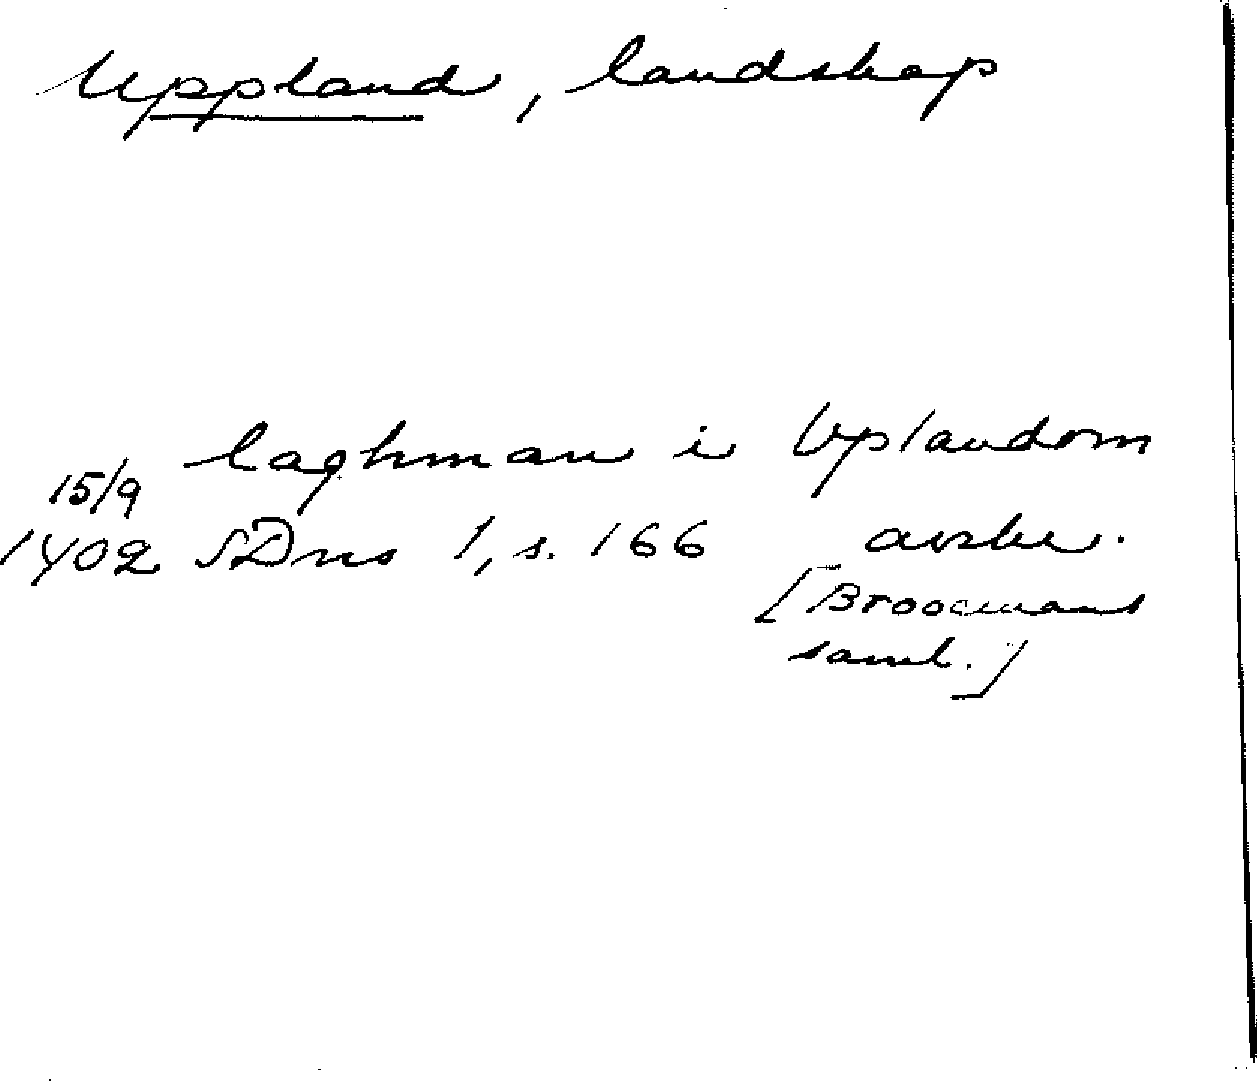 Uppland, landskap
laghman i Vplandom
15/9
1402 SDns 1, s. 166 avskr.
[Broocmans
saml.]